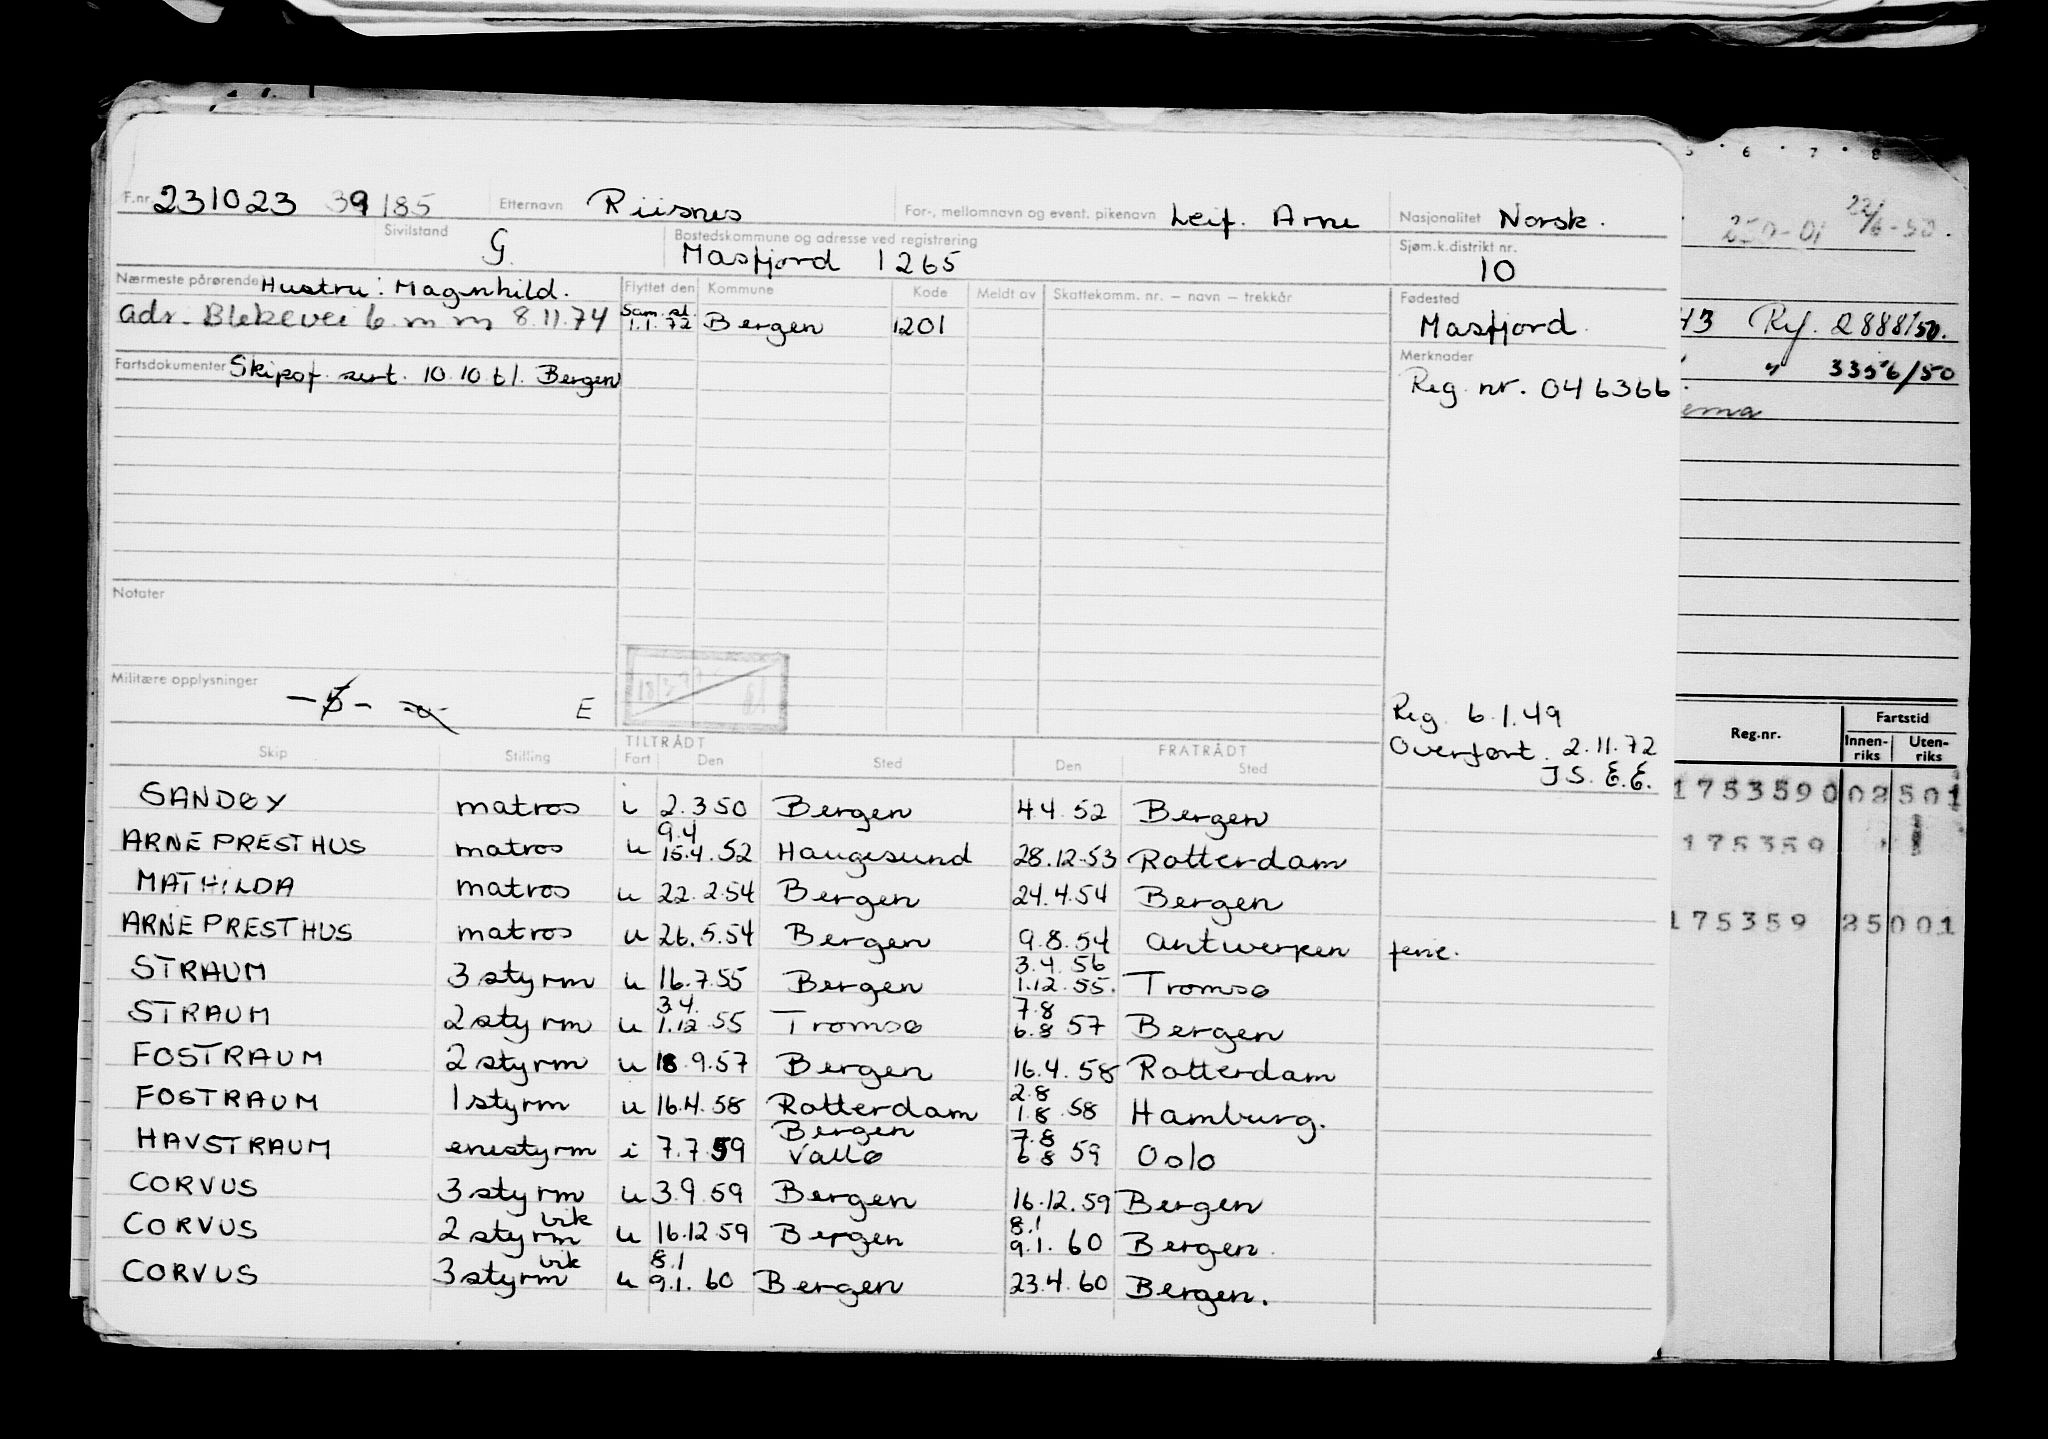 F.nr. 231023 39185 Etternavn Riisnes For-, mellomnavn og event. pikenavn Leif. Arne Nasjonalitet Norsk.
Sivilstand G. Bostedskommune og adresse ved registrering Masfjord 1265 Sjøm.k.distrikt nr. 10
Nærmeste pårørende Hustru: Magnhild. Flyttet den Kommune Kode Meldt av Skattekomm. nr. – navn – trekkår Fødested
adr. Blekevei 6. m m 8.11.74 Sam. sl. 1.1.72 Bergen 1201 Masfjord
Fartsdokumenter Skipsf. sert. 10 10 61. Bergen Merknader
Reg. nr. 046366.
Notater
Militære opplysninger E
Reg. 6.1.49
Overført. 2.11.72
J S. E. E.
TILTRÅDT FRATRÅDT
Skip Stilling Fart Den Sted Den Sted
SANDØY matros i 2.3 50 Bergen 4 4. 52 Bergen
ARNE PRESTHUS matros u 9.4 15.4.52 Haugesund 28.12.53 Rotterdam
MATHILDA matros u 22.2.54 Bergen 24.4.54 Bergen
ARNE PRESTHUS matros u 26.5.54 Bergen 9.8.54 Antwerpen ferie.
STRAUM 3 styrm u 16.7.55 Bergen 3.4.56 1.12.55. Tromsø
STRAUM 2 styrm u 3.4. 1.12 55 Tromsø 7.8 6.8 57 Bergen
FOSTRAUM 2 styrm u 18.9.57 Bergen 16.4.58 Rotterdam
FOSTRAUM 1 styrm u 16.4.58 Rotterdam 2.8 1.8.58 Hamburg.
HAVSTRAUM enestyrm i 7.7 59 Bergen Vallø 7.8 6 8 59 Oslo
CORVUS 3 styrm u 3.9.59 Bergen 16.12.59 Bergen
CORVUS 2 styrm vik u 16.12 59 Bergen 8.1 9.1.60 Bergen.
CORVUS 3 styrm vik u 8.1 9.1.60 Bergen 23.4.60 Bergen.
5 6 7 8
250-01 22/6-50.
43 Rf. 2888/50.
" 3356/50
Reg.nr. Fartstid
Innenriks Utenriks
1753590 02 501
175359
175359 25001